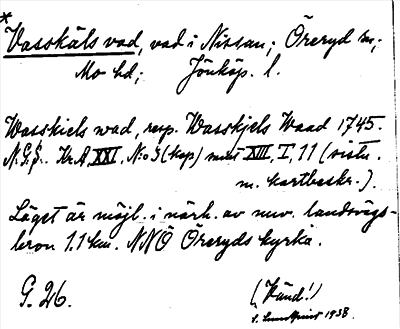 *
Vasskäls vad, vad i Nissan; Öreryd sn;
Mo hd; Jönköp. l.
Wasskiels wad, resp. Wasskjels Waad 1745.
N.G.S. Kr.A, XXI, N:o 3 (kop) samt XIII, I, 11 (sistn.
m. kartbeskr.).
Läget är möjl. i närh. av nuv. landsvägs-
bron 1.1 km. NNÖ Öreryds kyrka.
G. 26. (Vänd!)
S. Lundqvist 1938